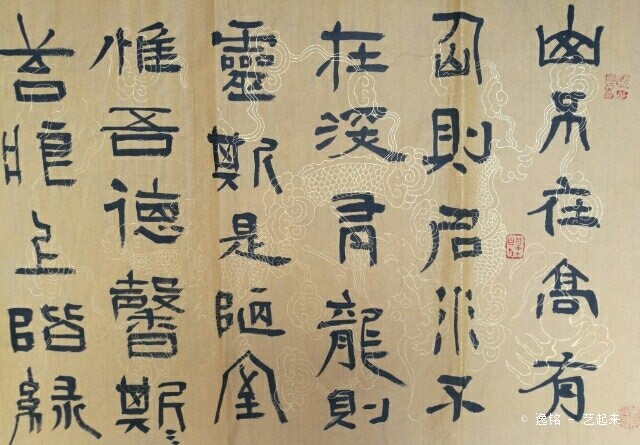 山不在高有
仚則名水不
在深有龍則
靈斯是陋室
惟吾德馨斯
苔痕上階綠
© 逸铭 - 艺起来